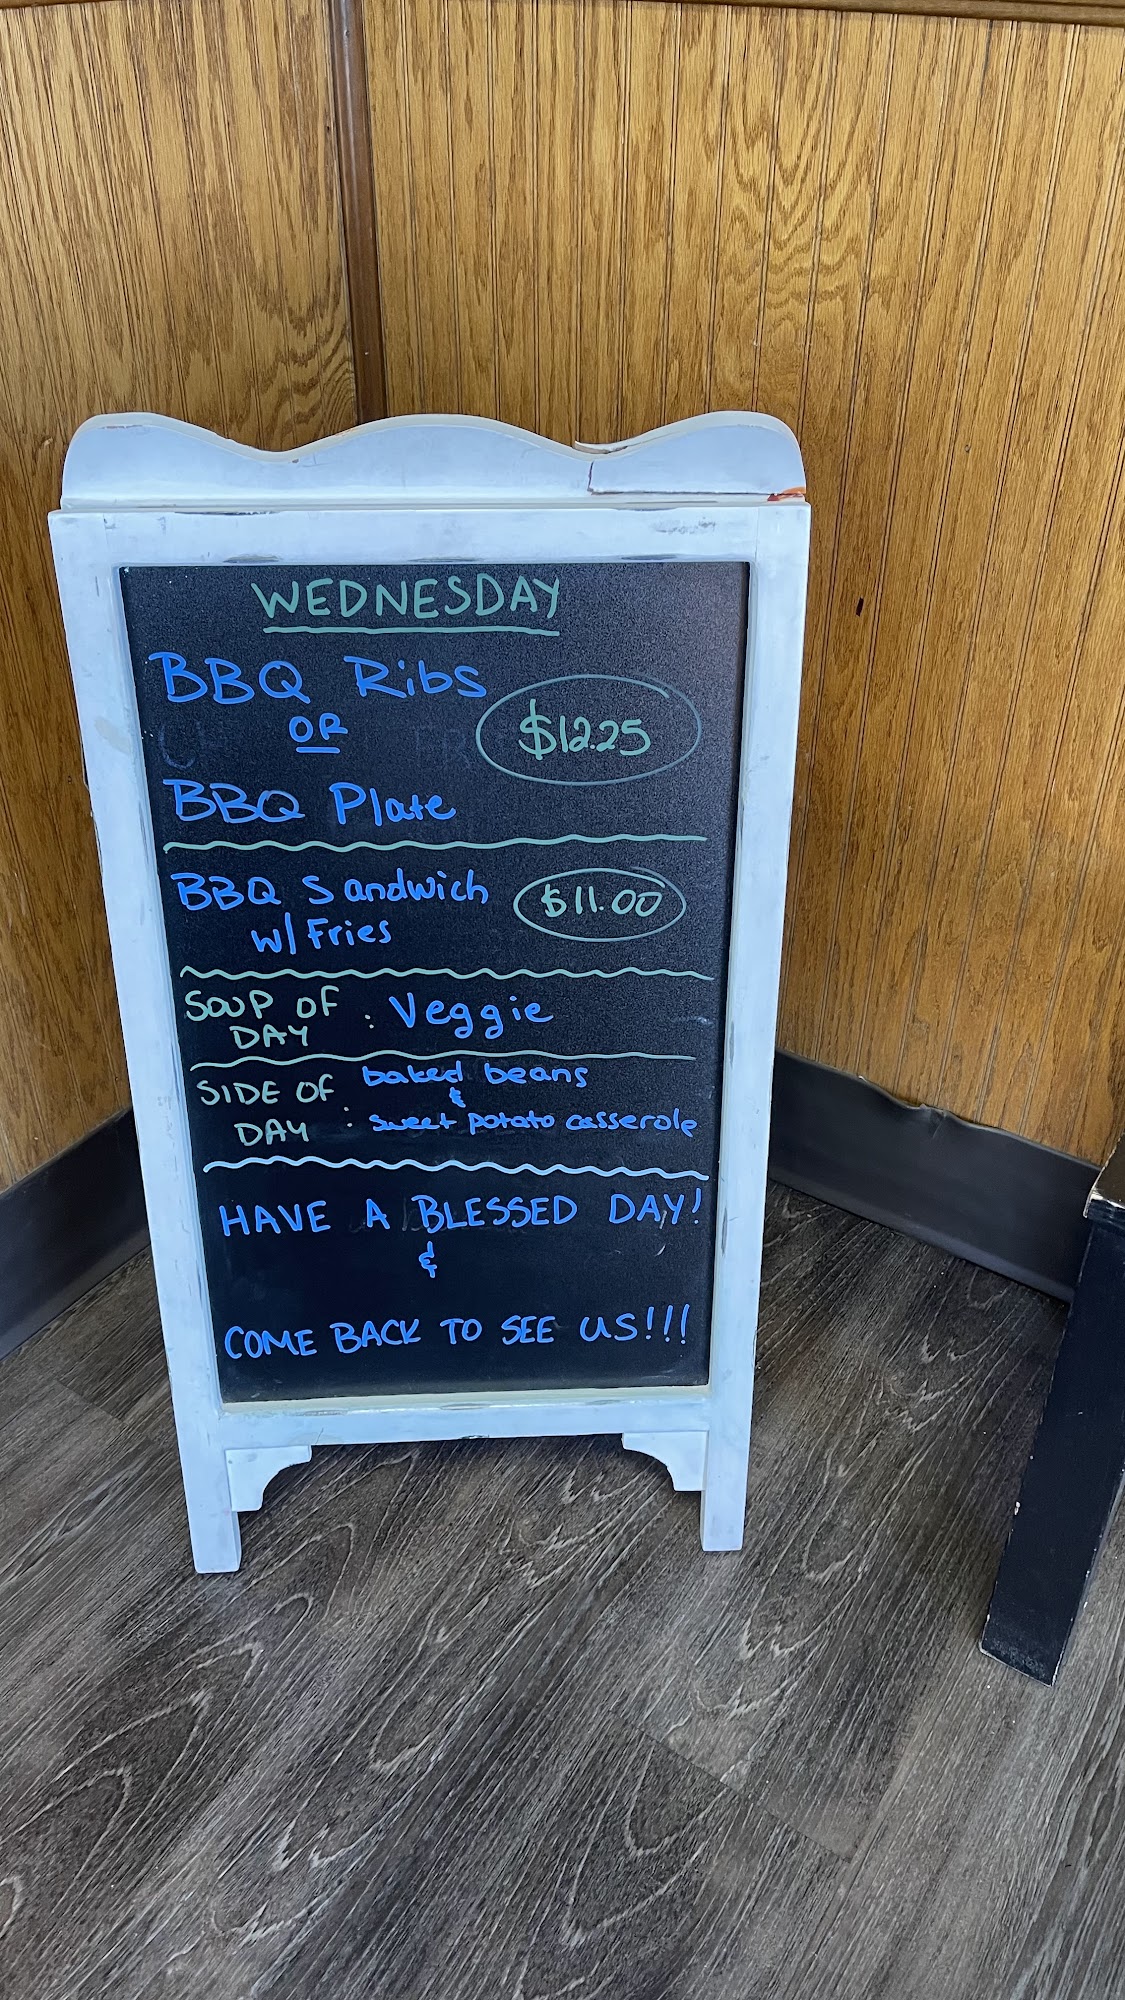 WEDNESDAY
BBQ Ribs
OR
$12.25
BBQ Plate
BBQ Sandwich
w/ Fries
$11.00
SOUP OF
DAY : Veggie
SIDE OF
DAY : baked beans
&
sweet potato casserole
HAVE A BLESSED DAY!
&
COME BACK TO SEE US!!!